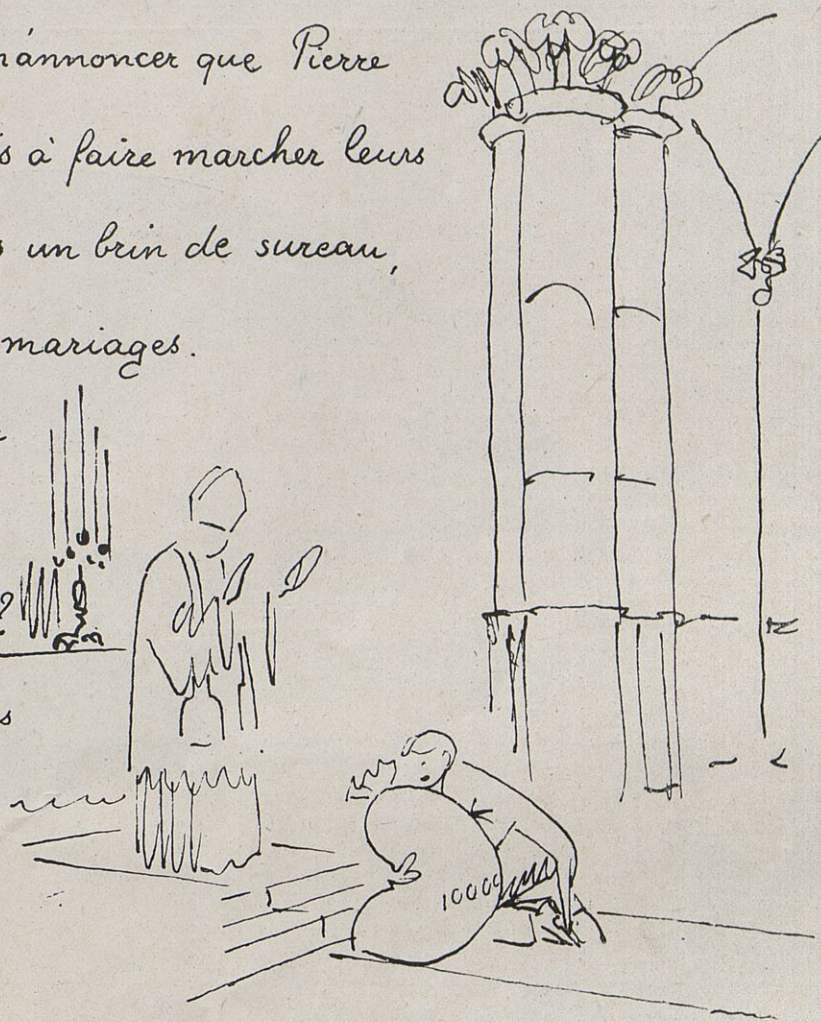 n'annoncer que Pierre
s à faire marcher leurs
s un brin de sureau,
mariages.
?
s
10000